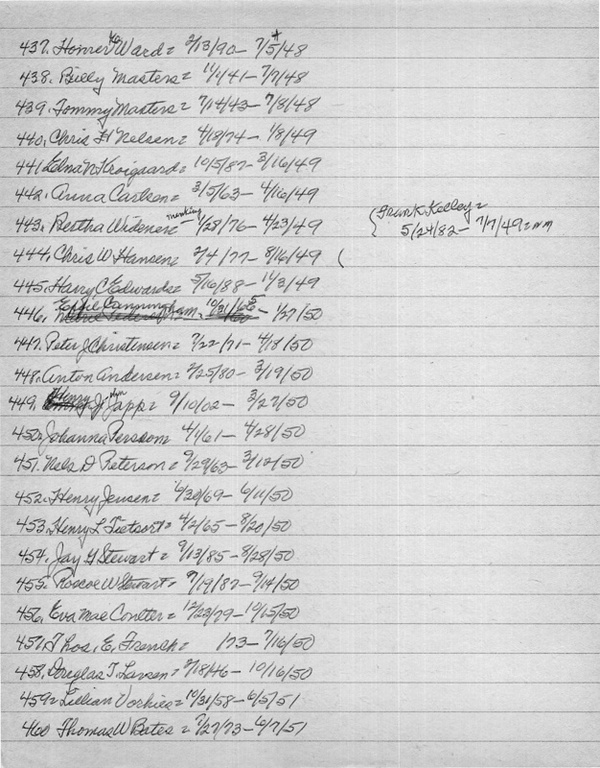 437. Homer Ward = 2/13/90 - 7/5/48
438. Billy Masters = 11/1/41 - 7/7/48
439. Tommy Masters = 7/14/43 - 7/8/48
440. Chris H Nelsen = 4/18/74 - 1/8/49
441 Edna N Kroigaard = 10/5/87 - 3/16/49
442. Anna Carlsen = 3/5/63 - 4/16/49
443. Bertha Widener = /28/76 - 4/23/49
Frank Kelley =
5/24/82 - 7/7/49
444. Chris W Hansen = 2/4/77 - 8/16/49 (
445. Harry C Edwards = 5/16/88 - 11/3/49
446. Effie Cunningham, 10/31/65 - 1/27/50
447. Peter J Christensen = 7/22/71 - 4/18/50
448. Anton Andersen = 2/25/80 - 3/19/50
449. Henry J Japp = 9/10/02 - 3/27/50
450 = Johanna Perssom 4/4/61 - 4/28/50
451. Nels D Peterson = 9/29/63 - 3/12/50
452. Henry Jensen = 4/30/69 - 6/11/50
453. Henry L Tietsort = 4/2/65 - 8/20/50
454. Jay G Stewart = 9/13/85 - 8/28/50
455. Roscoe W Stewart = 7/19/87 - 9/14/50
456. Eva Mae Coulter = 12/23/79 - 10/15/50
457. Thos. E. French = /73 - 7/16/50
458. Douglas T. Larsen = 2/18/46 - 10/16/50
459 = Lillian Vorhies = 10/31/58 - 6/5/51
460 Thomas W Bates = 7/27/73 - 6/7/51